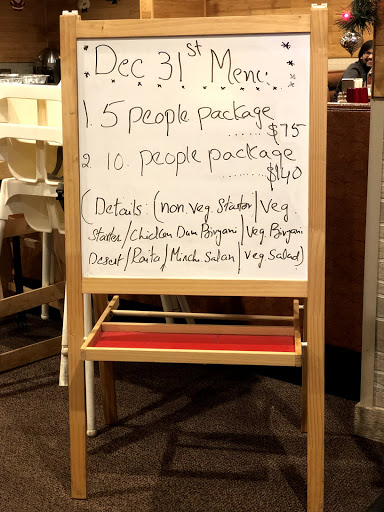 Dec 31st Menu.
1. 5 people package
........ $75
2. 10. people package
........ $140
(Details: (non. veg. Starter/Veg
Starter/Chicken Dum Biryani/Veg Biryani
Desert/Raita/Mirch. Salan/Veg Salad)